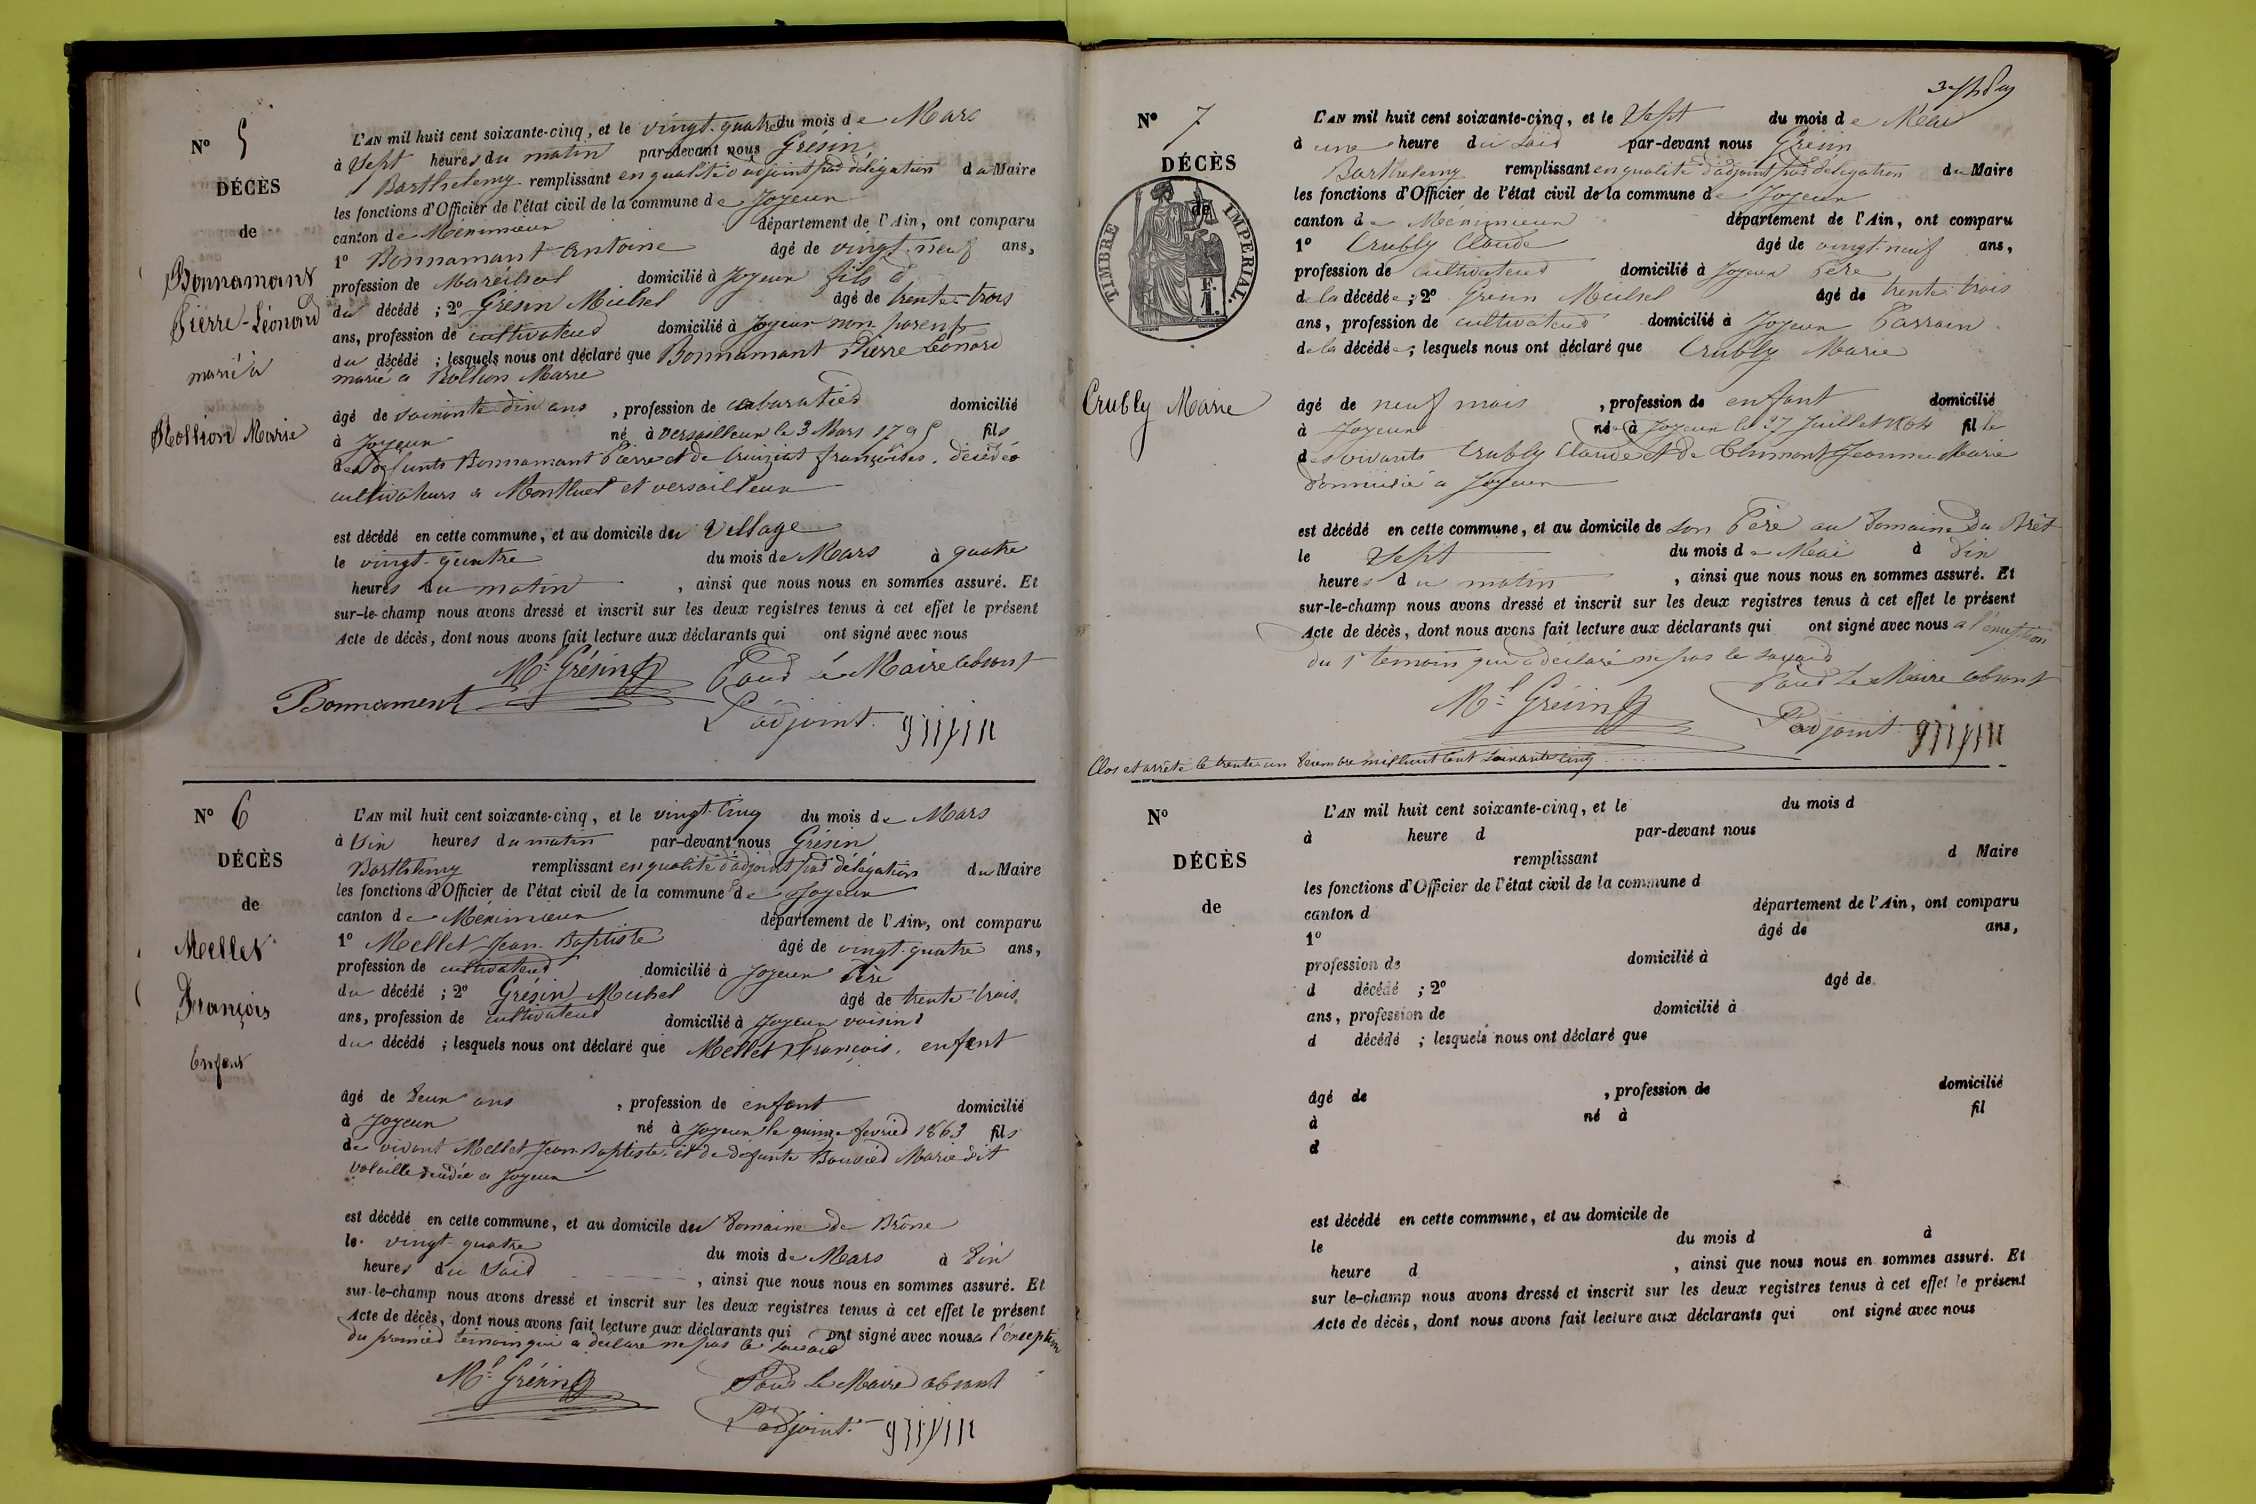 N° 5
DÉCÈS
de
Bonnamant
Pierre-Léonard
marié à
Rollion Marie
L'AN mil huit cent soixante-cinq, et le vingt-quatre du mois de Mars
à sept heures du matin par-devant nous Grésin
Barthelemy remplissant en qualité d'adjoint par délégation du Maire
les fonctions d'Officier de l'état civil de la commune de Joyeux
canton de Meximieux département de l'Ain, ont comparu
1° Bonnamant Antoine âgé de vingt-neuf ans,
profession de Maréchal domicilié à Joyeux fils
du décédé ; 2° Grésin Michel âgé de trente-trois
ans, profession de cultivateur domicilié à Joyeux non parent
du décédé ; lesquels nous ont déclaré que Bonnamant Pierre Léonard
marié à Rollion Marie
âgé de soixante dix ans , profession de cabaratier domicilié
à Joyeux né à Versailleux le 3 Mars 1795 fils
des défunts Bonnamant Pierre et de françoises. décédés
cultivateurs à Montluel et versailleux
est décédé en cette commune, et au domicile du Village
le vingt-quatre du mois de Mars à quatre
heures du matin , ainsi que nous nous en sommes assuré. Et
sur-le-champ nous avons dressé et inscrit sur les deux registres tenus à cet effet le présent
Acte de décès, dont nous avons fait lecture aux déclarants qui ont signé avec nous
Ml Grésin Pour le Maire absent
Bonnament L'adjoint. grésin
N° 6
DÉCÈS
de
Mellet
François
Enfant
L'AN mil huit cent soixante-cinq, et le vingt-cinq du mois de Mars
à dix heures du matin par-devant nous Grésin
Barthelemy remplissant en qualité d'adjoint par délégation du Maire
les fonctions d'Officier de l'état civil de la commune de Joyeux
canton de Meximieux département de l'Ain, ont comparu
1° Mellet Jean-Baptiste âgé de vingt-quatre ans,
profession de cultivateur domicilié à Joyeux Père
du décédé ; 2° Grésin Michel âgé de trente-trois
ans, profession de cultivateur domicilié à Joyeux voisin
du décédé ; lesquels nous ont déclaré que Mellet François, enfant
âgé de deux ans , profession de enfant domicilié
à Joyeux né à Joyeux le quinze fevrier 1863 fils
de vivant Mellet Jean Baptiste et de défunte Bouvier Marie dit
volaille décédée à Joyeux
est décédé en cette commune, et au domicile du Domaine de Brône
le vingt-quatre du mois de Mars à dix
heures du Soir , ainsi que nous nous en sommes assuré. Et
sur-le-champ nous avons dressé et inscrit sur les deux registres tenus à cet effet le présent
Acte de décès, dont nous avons fait lecture aux déclarants qui ont signé avec nous à l'exception
du premier témoin qui a déclaré ne pas le savoir
Ml Grésin Pour le Maire absent
L'adjoint. grésin
N° 7
DÉCÈS
de
TIMBRE IMPERIAL.
1 F.
Crubly Marie
L'AN mil huit cent soixante-cinq, et le Sept du mois de Mai
à une heure du soir par-devant nous Grésin
Barthelemy remplissant en qualité d'adjoint par délégation du Maire
les fonctions d'Officier de l'état civil de la commune de Joyeux
canton de Meximieux département de l'Ain, ont comparu
1° Crubly Claude âgé de vingt-neuf ans,
profession de cultivateur domicilié à Joyeux Père
de la décédée ; 2° Grésin Michel âgé de trente-trois
ans, profession de cultivateur domicilié à Joyeux Parrain
de la décédée ; lesquels nous ont déclaré que Crubly Marie
âgé de neuf mois , profession de enfant domicilié
à Joyeux née à Joyeux le 27 Juillet 1864 fille
des vivants Crubly Claude et de Clumont Jeanne Marie
domicilié à Joyeux
est décédé en cette commune, et au domicile de son Père au Domaine du
le Sept du mois de Mai à dix
heures du matin , ainsi que nous nous en sommes assuré. Et
sur-le-champ nous avons dressé et inscrit sur les deux registres tenus à cet effet le présent
Acte de décès, dont nous avons fait lecture aux déclarants qui ont signé avec nous à l'exception
du 1er témoin qui a déclaré ne pas le savoir
Pour Le Maire absent
Ml Grésin L'adjoint grésin
Clos et arrêté le trente-un Décembre mil huit cent soixante cinq
N°
DÉCÈS
de
L'AN mil huit cent soixante-cinq, et le du mois d
à heure d par-devant nous
remplissant d Maire
les fonctions d'Officier de l'état civil de la commune d
canton d département de l'Ain, ont comparu
1° âgé de ans,
profession de domicilié à
d décédé ; 2° âgé de
ans, profession de domicilié à
d décédé ; lesquels nous ont déclaré que
âgé de , profession de domicilié
à né à fil
d
est décédé en cette commune, et au domicile de
le du mois d à
heure d , ainsi que nous nous en sommes assuré. Et
sur le-champ nous avons dressé et inscrit sur les deux registres tenus à cet effet le présent
Acte de décès, dont nous avons fait lecture aux déclarants qui ont signé avec nous